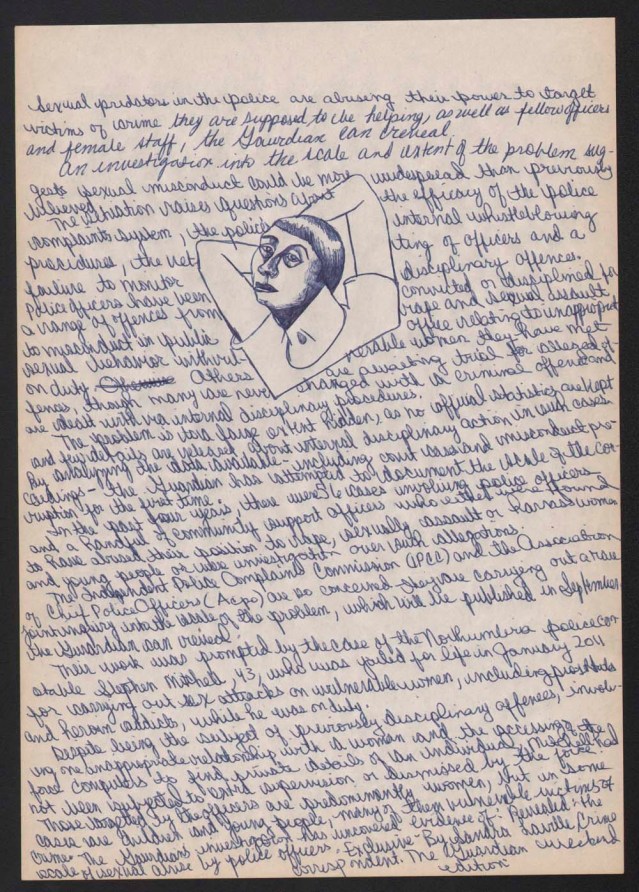 Sexual predators in the police are abusing their power to target
victims of crime they are supposed to be helping, as well as fellow officers
and female staff, the Gaurdian can reveal.
An investigation into the scale and extent of the problem sug-
gests sexual misconduct could be more widespread than previously
believed.
The situation raises questions about the efficacy of the police
complaints system, the police internal whistleblowing
procedures, the vet- ting of officers and a
failure to monitor disciplinary offences.
Police officers have been convicted or disciplined for
a range of offences from rape and sexual assault
to misconduct in public office relating to inappropriate
sexual behavior with vul- nerable women they have met
on duty. Others are awaiting trial for alleged of-
fences, though many are never charged with a criminal offence and
are dealt with via internal disciplinary procedures.
The problem is to a large extent hidden, as no official statistics are kept
and few details are released about internal disciplinary action in such cases.
By analysing the data available - including court cases and misconduct pro-
ceedings - the Guardian has attempted to document the scale of the cor-
ruption for the first time.
In the past four years, there were 56 cases involving police officers
and a handful of community support officers who either were found
to have abused their position to rape, sexually assault or harass women
and young people or were investigation over such allegations.
The Independent Police Complaints Commission (IPCC) and the Association
of Chief Police Officers (Acpo) are so concerned they are carrying out a rare
joint inquiry into the scale of the problem, which will be published in September,
the Guardian can reveal.
Their work was prompted by the case of the Northumbria police con-
stable Stephen Mitchell, 43, who was jailed for life in January 2011
for carrying out sex attacks on vulnerable women, including prostitutes
and heroin addicts, while he was on duty.
Despite being the subject of previously disciplinary offences, involv-
ing one inappropriate relationship with a woman and the accessing of the
force computers to find private details of an individual, Mitchell had
not been subjected to extra supervision or dismissed by the force.
Those targeted by the officers are predominantly women, but in some
cases are children and young people, many of them vulnerable victims of
crime. The Gaurdian's investigation has uncovered evidence of: Revealed: the
scale of sexual abuse by police officers. Exclusive - By Sandra Laville, Crime
correspondent. The Guardian weekend
edition